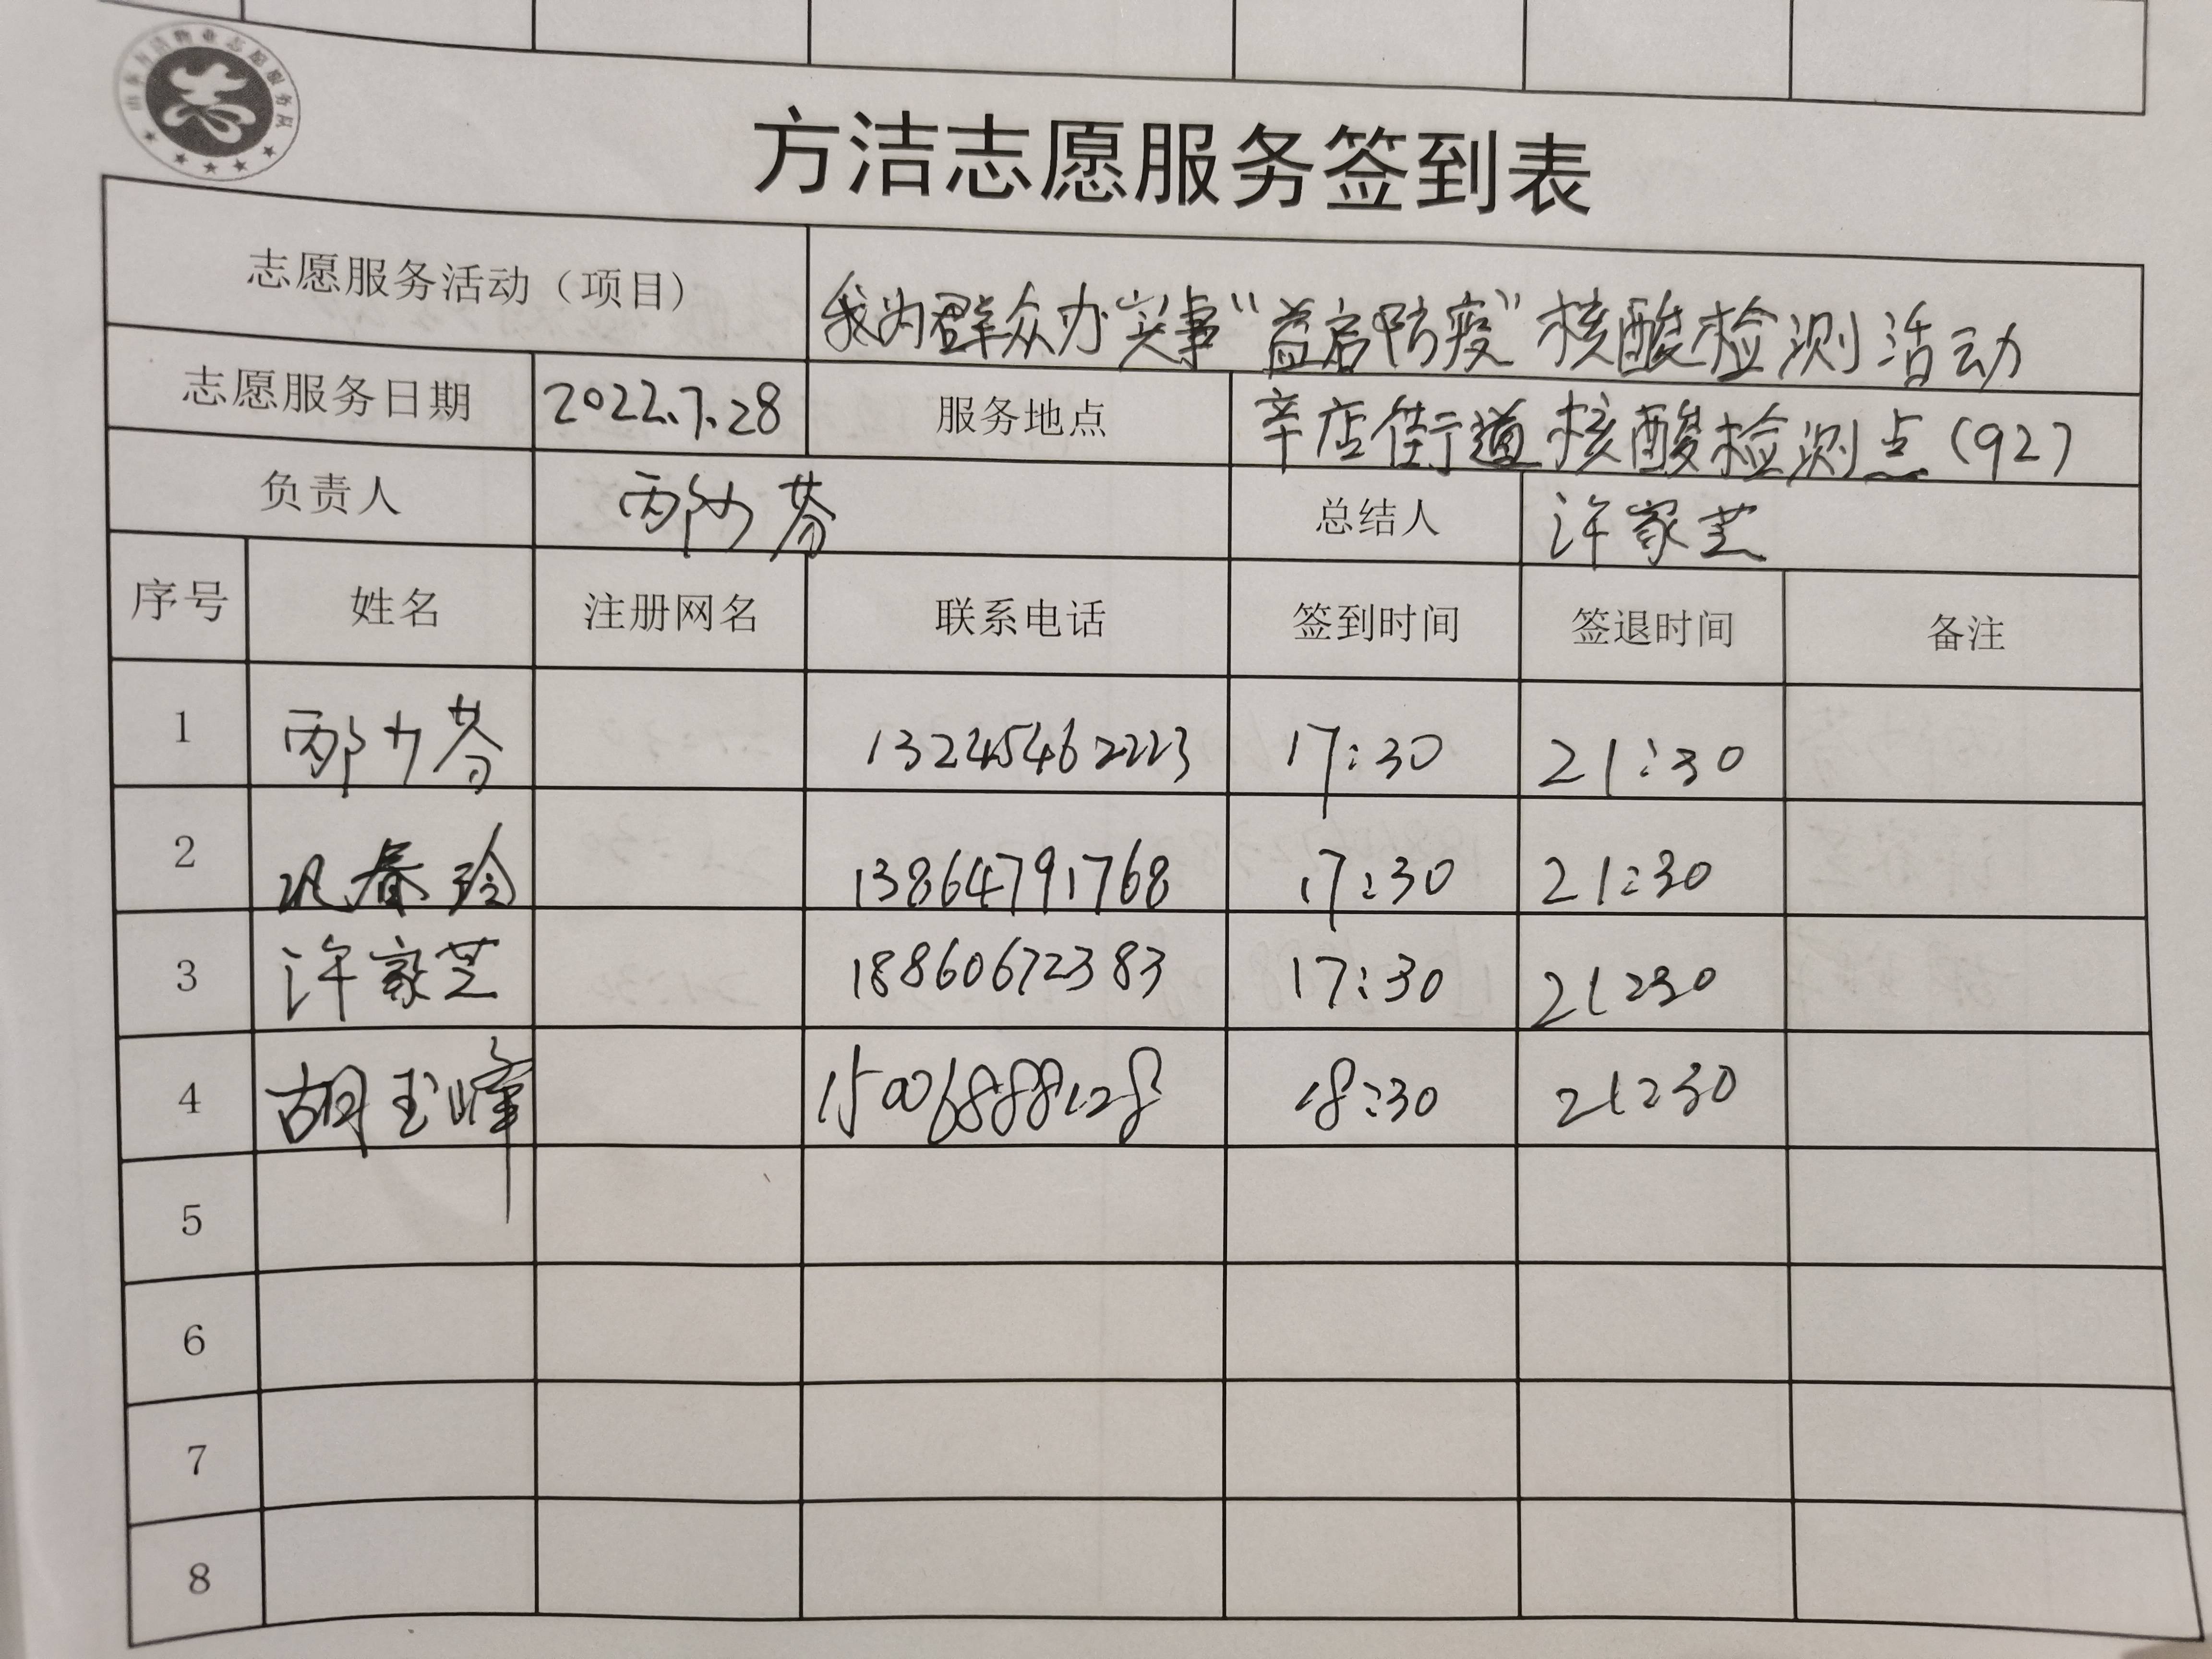 山东方洁物业志愿服务队
方洁志愿服务签到表
志愿服务活动（项目） 我为群众办实事“益启防疫”核酸检测活动
志愿服务日期 2022.7.28 服务地点 辛店街道核酸检测点(92)
负责人 邴少芬 总结人 许家芝
序号 姓名 注册网名 联系电话 签到时间 签退时间 备注
1 邴少芬 13245462223 17:30 21:30
2 巩春玲 13864791768 17:30 21:30
3 许家芝 18860672383 17:30 21:30
4 胡玉峰 15006888128 18:30 21:30
5
6
7
8